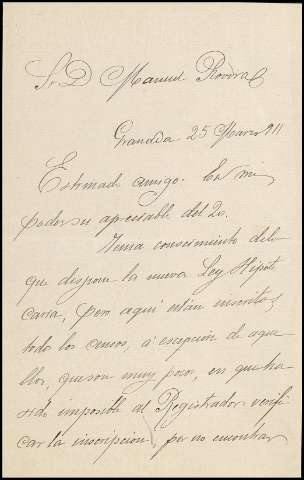 Sr D Manuel Rovira
Granada 25 Marzo 911
Estimado amigo: En mi
poder su apreciable del 20.
Tenia conocimiento de lo
que dispone la nueva Ley Hipote
caria, pero aqui están inscritos
todos los censos, á escepción de aque
llos, que son muy pocos, en que ha
sido imposible al Registrador verifi
car la inscripcion, por no encontrar